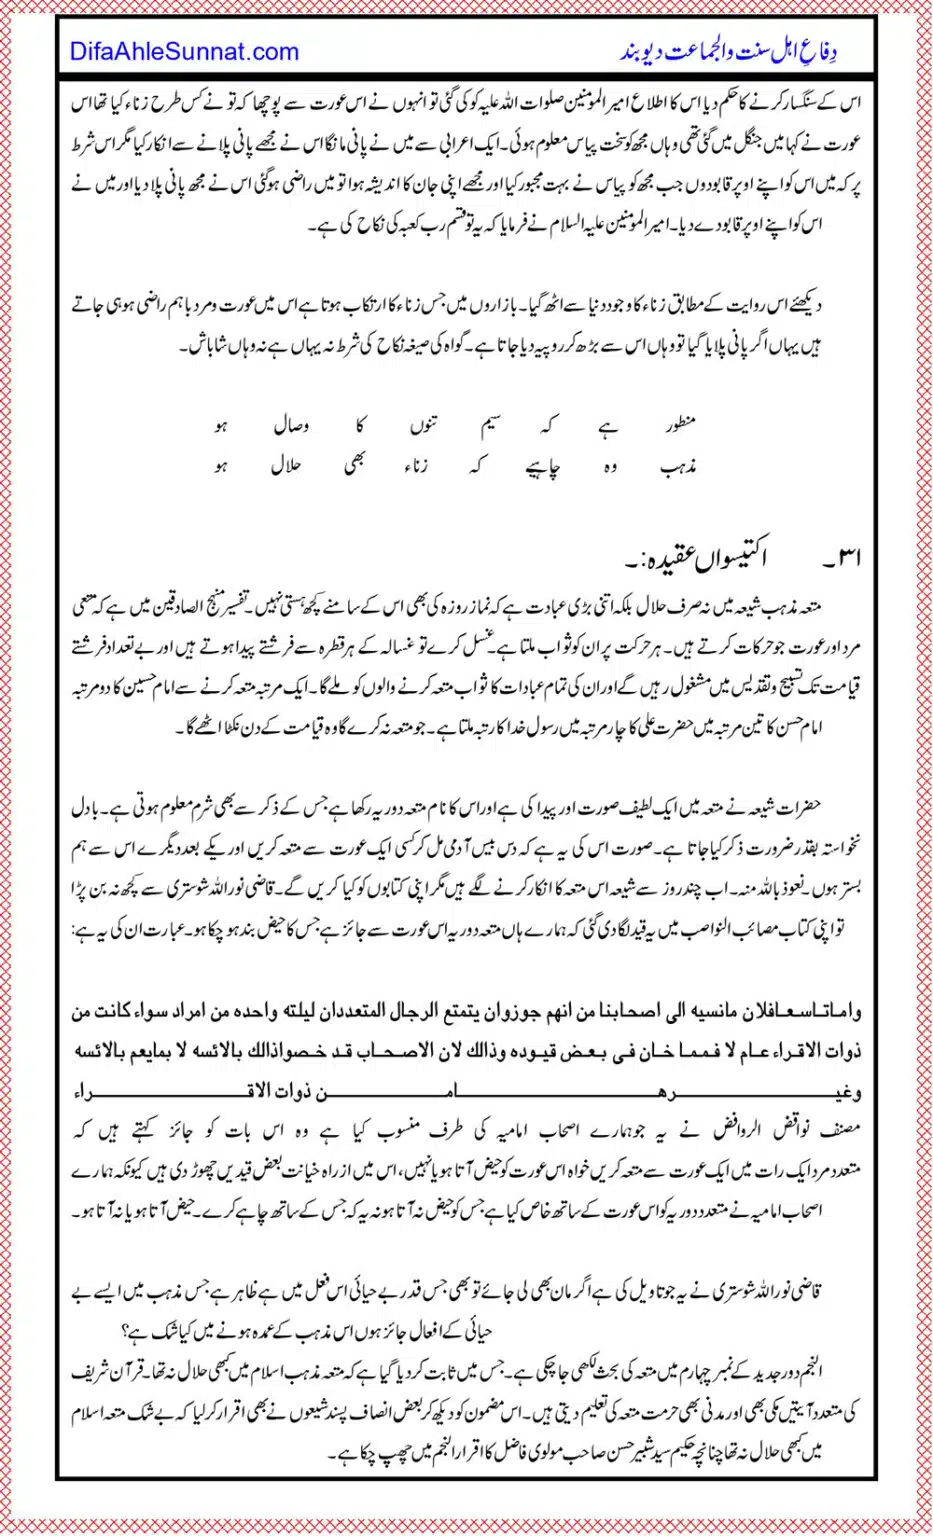 DifaAhleSunnat.com دِفاعِ اہل سنت والجماعت دیوبند
اس کے سنگسار کرنے کا حکم دیا اس کا اطلاع امیر المؤمنین صلوات اللہ علیہ کو کی گئی تو انہوں نے اس عورت سے پوچھا کہ تو نے کس طرح زناء کیا تھا اس
عورت نے کہا میں جنگل میں گئی تھی وہاں مجھ کو سخت پیاس معلوم ہوئی۔ ایک اعرابی سے میں نے پانی مانگا اس نے مجھے پانی پلانے سے انکار کیا مگر اس شرط
پر کہ میں اس کو اپنے اوپر قابو دوں جب مجھ کو پیاس نے بہت مجبور کیا اور مجھے اپنی جان کا اندیشہ ہوا تو میں راضی ہو گئی اس نے مجھ پانی پلا دیا اور میں نے
اس کو اپنے اوپر قابو دے دیا۔ امیر المؤمنین علیہ السلام نے فرمایا کہ یہ تو قسم رب کعبہ کی نکاح کی ہے۔
دیکھئے اس روایت کے مطابق زناء کا وجود دنیا سے اٹھ گیا۔ بازاروں میں جس زناء کا ارتکاب ہوتا ہے اس میں عورت و مرد باہم راضی ہو ہی جاتے
ہیں یہاں اگر پانی پلایا گیا تو وہاں اس سے بڑھ کر روپیہ دیا جاتا ہے۔ گواہ کی صیغہ نکاح کی شرط نہ یہاں ہے نہ وہاں شاباش۔
منظور ہے کہ سیم تنوں کا وصال ہو
مذہب وہ چاہیے کہ زناء بھی حلال ہو
۳۱۔ اکتیسواں عقیدہ:۔
متعہ مذہب شیعہ میں نہ صرف حلال بلکہ اتنی بڑی عبادت ہے کہ نماز روزہ کی بھی اس کے سامنے کچھ ہستی نہیں۔ تفسیر منہج الصادقین میں ہے کہ متعی
مرد اور عورت جو حرکات کرتے ہیں۔ ہر حرکت پر ان کو ثواب ملتا ہے۔ غسل کرے تو غسالہ کے ہر قطرہ سے فرشتے پیدا ہوتے ہیں اور بے تعداد فرشتے
قیامت تک تسبیح و تقدیس میں مشغول رہیں گے اور ان کی تمام عبادات کا ثواب متعہ کرنے والوں کو ملے گا۔ ایک مرتبہ متعہ کرنے سے امام حسین کا دو مرتبہ
امام حسن کا تین مرتبہ میں حضرت علی کا چار مرتبہ میں رسول خدا کا رتبہ ملتا ہے۔ جو متعہ نہ کرے گا وہ قیامت کے دن نکٹا اٹھے گا۔
حضرات شیعہ نے متعہ میں ایک لطیف صورت اور پیدا کی ہے اور اس کا نام متعہ دوریہ رکھا ہے جس کے ذکر سے بھی شرم معلوم ہوتی ہے۔ بادل
نخواستہ بقدر ضرورت ذکر کیا جاتا ہے۔ صورت اس کی یہ ہے کہ دس بیس آدمی مل کر کسی ایک عورت سے متعہ کریں اور یکے بعد دیگرے اس سے ہم
بستر ہوں۔ نعوذ باللہ منہ۔ اب چند روز سے شیعہ اس متعہ کا انکار کرنے لگے ہیں مگر اپنی کتابوں کو کیا کریں گے۔ قاضی نور اللہ شوستری سے کچھ نہ بن پڑا
تو اپنی کتاب مصائب النواصب میں یہ قید لگا دی گئی کہ ہمارے ہاں متعہ دوریہ اس عورت سے جائز ہے جس کا حیض بند ہو چکا ہو۔ عبارت ان کی یہ ہے:
واماتاسعافلان مانسیه الی اصحابنا من انهم جوزوان یتمتع الرجال المتعددان لیلته واحده من امراد سواء کانت من
ذوات الاقراء عام لا فمما خان فی بعض قیوده وذالك لان الاصحاب قد خصواذالك بالائسه لا بمایعم بالائسه
وغیرها من ذوات الاقراء
مصنف نواقض الروافض نے یہ جو ہمارے اصحاب امامیہ کی طرف منسوب کیا ہے وہ اس بات کو جائز کہتے ہیں کہ
متعدد مرد ایک رات میں ایک عورت سے متعہ کریں خواہ اس عورت کو حیض آتا ہو یا نہیں، اس میں از راہ خیانت بعض قیدیں چھوڑ دی ہیں کیونکہ ہمارے
اصحاب امامیہ نے متعدد دوریہ کو اس عورت کے ساتھ خاص کیا ہے جس کو حیض نہ آتا ہو نہ یہ کہ جس کے ساتھ چاہے کرے۔ حیض آتا ہو یا نہ آتا ہو۔
قاضی نور اللہ شوستری نے یہ جو تاویل کی ہے اگر مان بھی لی جائے تو بھی جس قدر بے حیائی اس فعل میں ہے ظاہر ہے جس مذہب میں ایسے بے
حیائی کے افعال جائز ہوں اس مذہب کے عمدہ ہونے میں کیا شک ہے؟
النجم دور جدید کے نمبر چہارم میں متعہ کی بحث لکھی جا چکی ہے۔ جس میں ثابت کر دیا گیا ہے کہ متعہ مذہب اسلام میں کبھی حلال نہ تھا۔ قرآن شریف
کی متعدد آیتیں مکی بھی اور مدنی بھی حرمت متعہ کی تعلیم دیتی ہیں۔ اس مضمون کو دیکھ کر بعض انصاف پسند شیعوں نے بھی اقرار کر لیا کہ بے شک متعہ اسلام
میں کبھی حلال نہ تھا چنانچہ حکیم سید شبیر حسن صاحب مولوی فاضل کا اقرار النجم میں چھپ چکا ہے۔